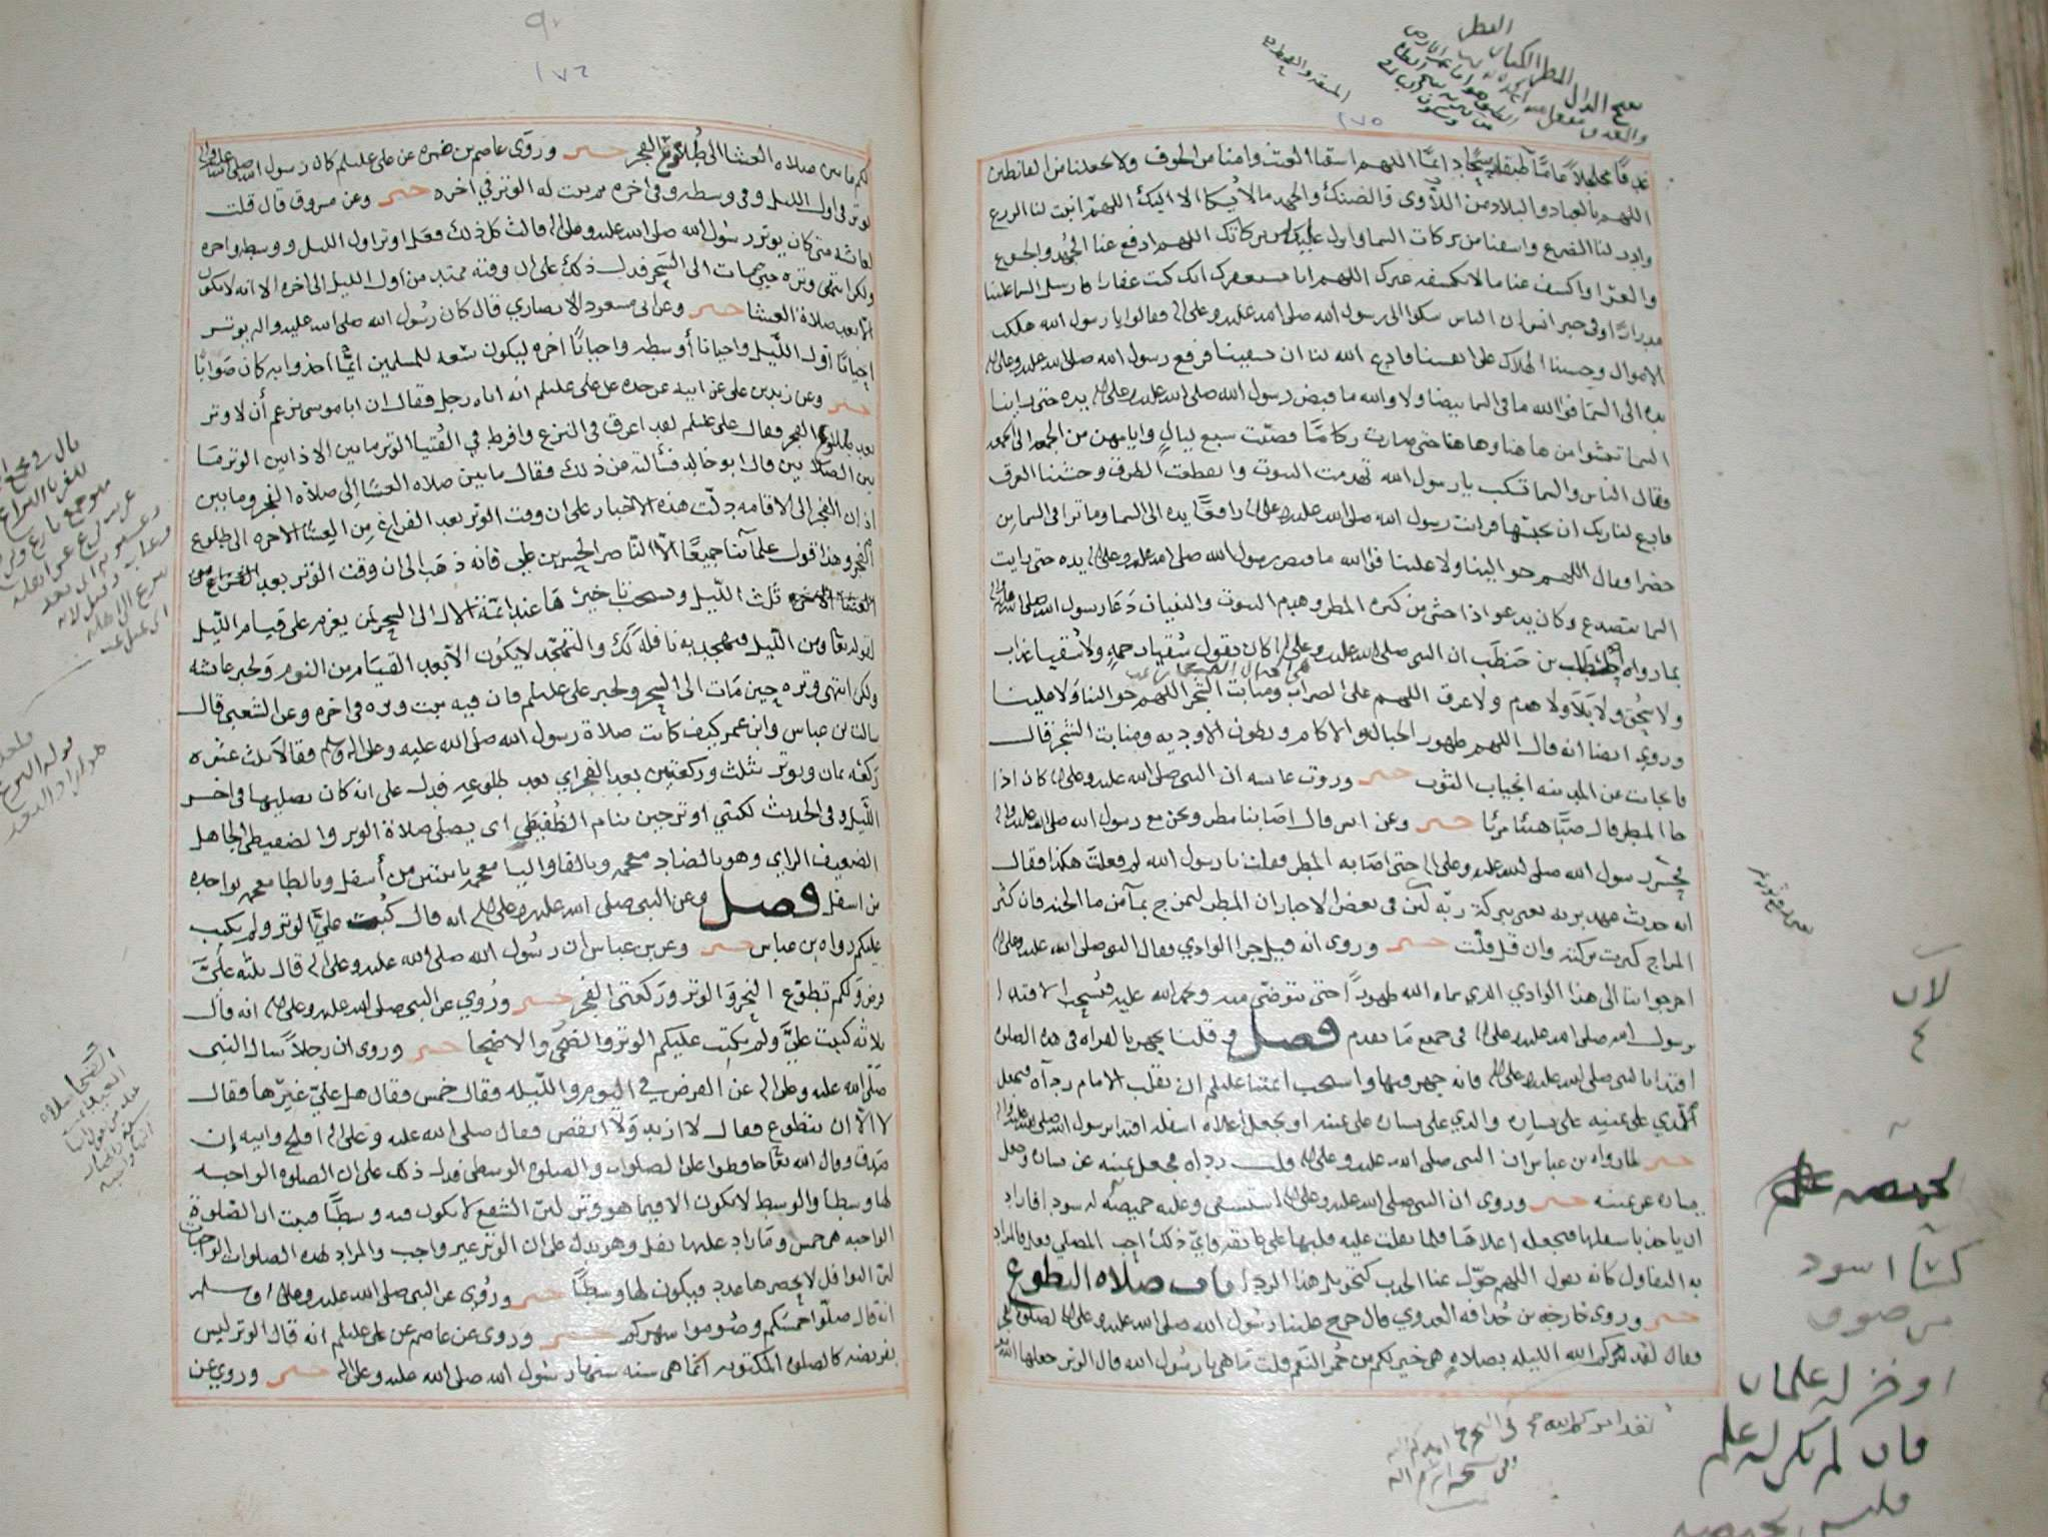 ١٧٥
غدقا مجللا عاما طبقا سحا دائما اللهم اسقنا الغيث وامنا من الخوف ولا تجعلنا من القانطين
اللهم بالعباد والبلاد من اللأوى والضنك والجهد مالا يشكا الا اليك اللهم انبت لنا الزرع
وادر لنا الضرع واسقنا من بركات السما وانزل علينا من بركاتك اللهم ادفع عنا الجهد والجوع
والعرا واكشف عنا مالا يكشفه غيرك اللهم انا نستغفرك انك كنت غفارا فارسل السما علينا
مدرارا وفي خبر انس ان الناس شكوا الى رسول الله صلى الله عليه وعلى اله فقالوا يا رسول الله هلكت
الاموال وخشينا الهلاك على انفسنا فادع الله لنا ان يسقينا فرفع رسول الله صلى الله عليه وعلى اله
يده الى السما فوالله ما في السما بيضا ولا والله ما قبض رسول الله صلى الله عليه وعلى اله يده حتى راينا
السما من هاهنا وهاهنا حتى صارت ركاما فصبت سبع ليال وايامهن من الجمعه الى الجمعه
فقال الناس والسما تسكب يا رسول الله تهدمت البيوت وانقطعت الطرق وخشينا الغرق
فادع لنا ربك ان يحبسها فرايت رسول الله صلى الله عليه وعلى اله رافعا يده الى السما وما ترا في السما من
خضرا فقال اللهم حوالينا ولا علينا فوالله ما قبض رسول الله صلى الله عليه وعلى اله يده حتى رايت
السما تتصدع وكان يدعو اذا خشي من كثره المطر وهدم البيوت والبنيان دعا رسول الله صلى الله عليه وعلى اله
بما رواه المطلب بن حنطب ان النبي صلى الله عليه وعلى اله كان يقول سقيا رحمه ولا سقيا عذاب
ولا محق ولا بلا ولا هدم ولا غرق اللهم على الضراب ومنابت الشجر اللهم حوالينا ولا علينا
وروي ايضا انه قال اللهم ظهور الجبال والاكام وبطون الاوديه ومنابت الشجر قال
فانجابت عن المدينه انجياب الثوب خبر وروت عائشه ان النبي صلى الله عليه وعلى اله كان اذا
جا المطر قال صبا هنيئا مريا خبر وعن انس قال اصابنا مطر ونحن مع رسول الله صلى الله عليه وعلى اله
فحسر رسول الله صلى الله عليه وعلى اله حتى اصابه المطر فقلت يا رسول الله لم فعلت هكذا فقال
انه حديث عهد بربه يعني ببركة ربه لئن في بعض الاخبار ان المطر ليمزج بما من ما الجنه فان كثر
المزاج كثرت بركته وان قل قلت خبر وروى انه قيل جرا الوادي فقال النبي صلى الله عليه وعلى اله
اخرجوا بنا الى هذا الوادي الذي سماه الله طهورا حتى نتوضى منه ونحمد الله عليه فيستحب الاقتدا
برسول الله صلى الله عليه وعلى اله في جميع ما تقدم فصل وقلنا يجهر بالقراه في هذه الصلاه
اقتدا بالنبي صلى الله عليه وعلى اله فانه جهر فيها واستحب ائمتنا عليهم ان يقلب الامام رداه فيجعل
الذي على يمينه على يساره والذي على يساره على يمينه او يجعل اعلاه اسفله اقتدا برسول الله صلى الله عليه واله
خبر لما رواه بن عباس ان النبي صلى الله عليه وعلى اله قلب رداه فجعل يمينه عن يساره وجعل
يساره عن يمينه خبر وروى ان النبي صلى الله عليه وعلى اله استسقى وعليه خميصه له سودا فاراد
ان ياخذ باسفلها فيجعله اعلاها فلما ثقلت عليه قلبها على عاتقه واي ذلك احب المصلي فعله والمراد
به التفاول كانه يقول اللهم حول عنا الجدب كتحويل هذا الردا باب صلاه التطوع
خبر وروى خارجه بن حذافه العدوي قال خرج علينا رسول الله صلى الله عليه وعلى اله لصلوة
فقال لقد امركم الله الليله بصلاه هي خير لكم من حمر النعم قلت ما هي يا رسول الله قال الوتر جعلها الله
لان
٤
خميصه علم
كسا اسود
من صوف
او خز له علمان
فان لم يكن له علم
فليس بخميصه
١٧٦
لكم ما بين صلاه العشا الى طلوع الفجر خبر وروى عاصم بن ضمره عن علي عليلم كان رسول الله صلى الله عليه وعلى اله
يوتر في اول الليل وفي وسطه وفي اخره ثم ثبت له الوتر في اخره خبر وعن مسروق قال قلت
لعائشه متى كان يوتر رسول الله صلى الله عليه وعلى اله قالت كل ذلك فعل اوتر اول الليل ووسطه واخره
ولكن انتهى وتره حين مات الى السحر فدل ذلك على ان وقته ممتد من اول الليل الى اخره الا انه لا يكون
الا بعد صلاة العشا خبر وعن ابي مسعود الانصاري قال كان رسول الله صلى الله عليه واله يوتر
احيانا اول الليل واحيانا اوسطه واحيانا اخره ليكون سعه للمسلمين ايما اخذوا به كان صوابا
خبر وعن زيد بن علي عن ابيه عن جده عن علي عليلم انه اتاه رجل فقال ان ابا موسى يزعم أن لا وتر
بعد طلوع الفجر فقال علي عليلم لقد اغرق في النزع وافرط في الفتيا الوتر ما بين الاذانين الوتر ما
بين الصلاتين قال ابو خالد فسألته عن ذلك فقال ما بين صلاه العشا الى صلاه الفجر وما بين
اذان الفجر الى الاقامه دلت هذه الاخبار على ان وقت الوتر بعد الفراغ من العشا الاخره الى طلوع
الفجر وهذا قول علمآئنا جميعا الا الناصر الحسن بن علي فانه ذهب الى ان وقت الوتر بعد الفراغ من
العشا الاخره ثلث الليل ويستحب تاخيرها عند ائمة الال الى السحر لمن يعزم على قيام الليل
لقوله تعا ومن الليل فتهجد به نافلة لك والتهجد لا يكون الا بعد القيام من النوم ولخبر عائشه
ولكن انتهى وتره حين مات الى السحر ولخبر علي عليلم فان فيه ثبت وتره في اخره وعن الشعبي قال
سالت بن عباس وابن عمر كيف كانت صلاة رسول الله صلى الله عليه وعلى اله وسلم فقالا ثلث عشره
ركعه ثمان ويوتر بثلث وركعتين بعد الفجر اي بعد طلوعه فدل على انه كان يصليها في اخر
الليل وفي الحديث لكني اوتر حين ينام الضفيطي اي يصلى صلاة الوتر والضفيطي الجاهل
الضعيف الراي وهو بالضاد معجمه وبالفا واليا معجمه باثنتين من أسفل وبالطا معجمه بواحده
من اسفل فصل وعن النبي صلى الله عليه وعلى اله انه قال كتبت علي الوتر ولم يكتب
عليكم رواه بن عباس خبر وعن بن عباس ان رسول الله صلى الله عليه وعلى اله قال ثلثه علي
فرض ولكم تطوع النحر والوتر وركعتي الفجر خبر وروي عن النبي صلى الله عليه وعلى اله انه قال
ثلاثه كتبت علي ولم يكتب عليكم الوتر والضحى والاضحا خبر وروى ان رجلا سال النبي
صلى الله عليه وعلى اله عن الفرض في اليوم والليله فقال خمس فقال هل علي غيرها فقال
لا الا ان تتطوع فقال لا ازيد ولا انقص فقال صلى الله عليه وعلى اله افلح وابيه إن
صدق وقال الله تعا حافظوا على الصلوات والصلوه الوسطى فدل ذلك على ان الصلوه الواجبه
لها وسطا والوسط لا يكون الا فيما هو وتر لئن الشفع لا يكون فيه وسطا فثبت ان الصلوة
الواجبه هي خمس وما زاد عليها نفل وهو يدل على ان الوتر غير واجب والمراد بهذه الصلوات الواجبات
لئن النوافل لا يحصرها عدد فيكون لها وسطا خبر وروي عن النبي صلى الله عليه وعلى اله وسلم
انه قال صلوا خمسكم وصوموا شهركم خبر وروى عن عاصم عن علي عليلم انه قال الوتر ليس
بفريضه كالصلوه المكتوبه انما هي سنه سنها رسول الله صلى الله عليه وعلى اله خبر وروي عن